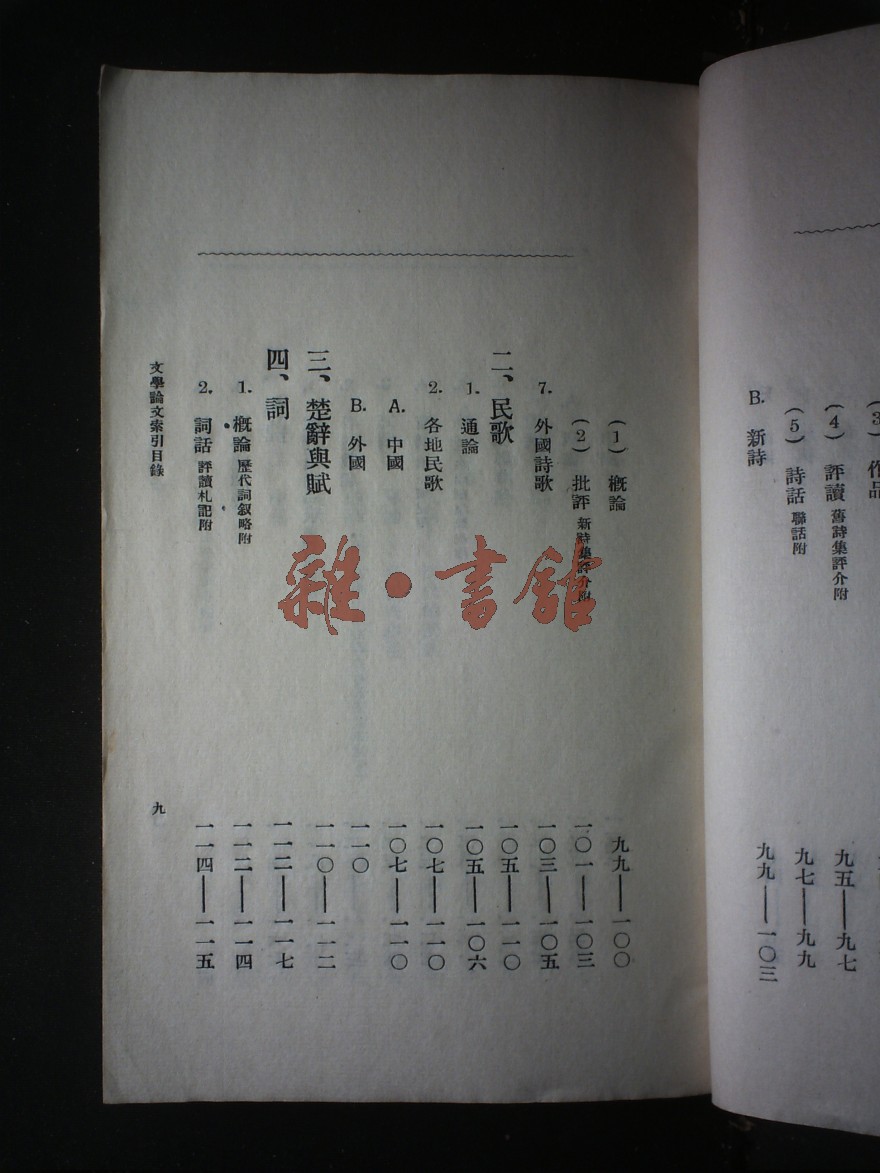 作品
(4) 評讀 舊詩集評介附 九五——九七
(5) 詩話 聯話附 九七——九九
B. 新詩 九九——一〇三
(1) 概論 九九——一〇〇
(2) 批評 新詩集評介附 一〇一——一〇三
7. 外國詩歌 一〇三——一〇五
二、民歌 一〇五——一一〇
1. 通論 一〇五——一〇六
2. 各地民歌 一〇七——一一〇
A. 中國 一〇七——一一〇
B. 外國 一一〇
三、楚辭與賦 一一〇——一一二
四、詞 一一二——一一七
1. 概論 歷代詞叙略附 一一二——一一四
2. 詞話 評讀札記附 一一四——一一五
文學論文索引目錄 九
雜·書館